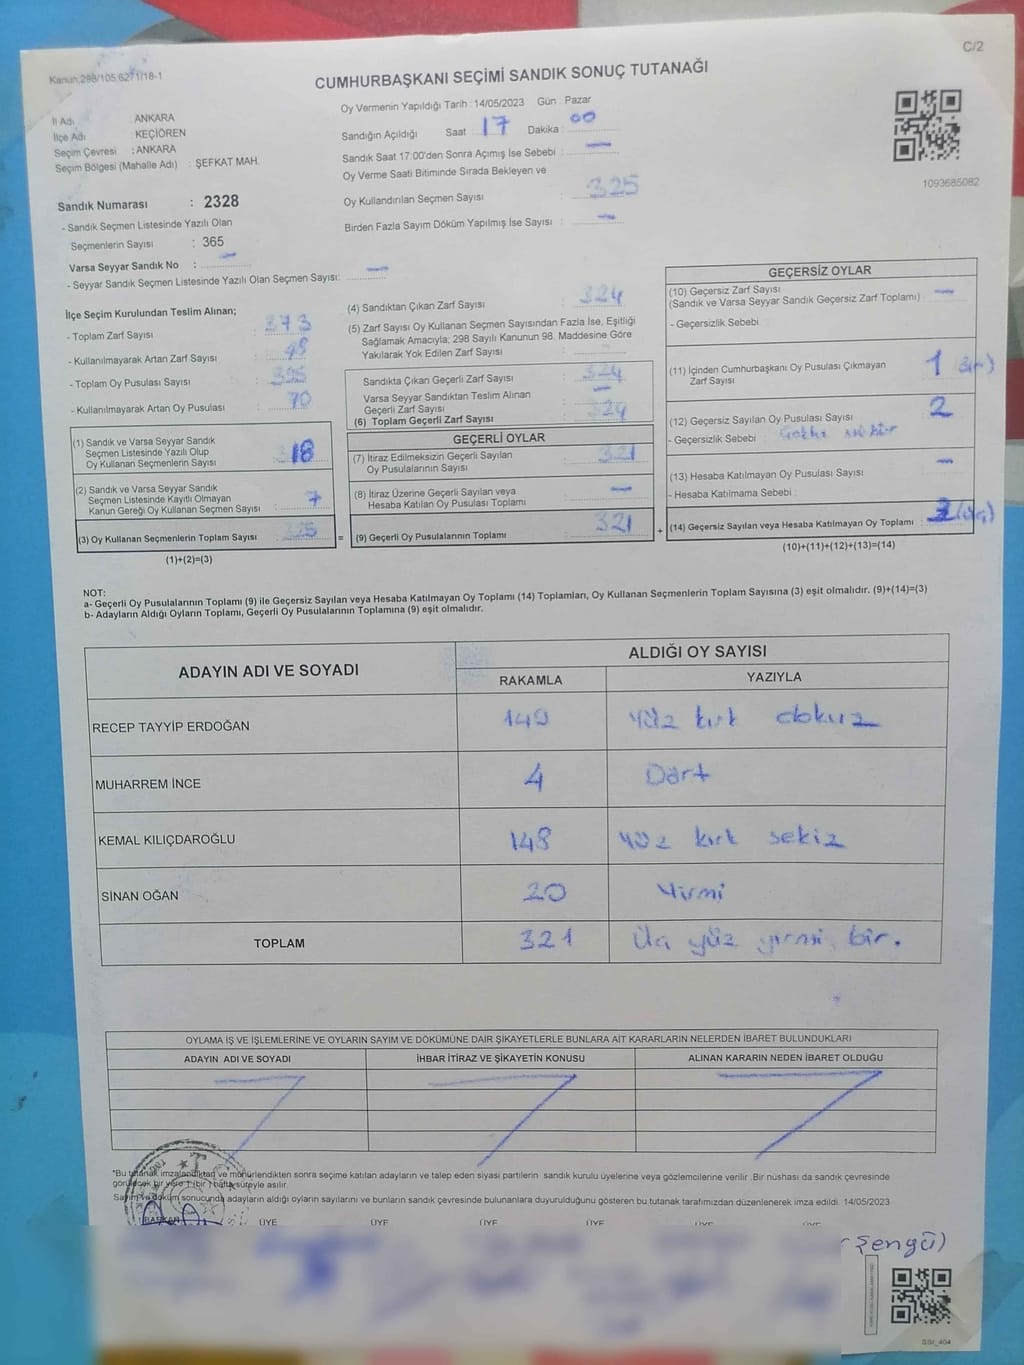 C/2
Kanun.298/105.6271/18-1
CUMHURBAŞKANI SEÇİMİ SANDIK SONUÇ TUTANAĞI
İl Adı : ANKARA
İlçe Adı : KEÇİÖREN
Seçim Çevresi : ANKARA
Seçim Bölgesi (Mahalle Adı) : ŞEFKAT MAH.
Oy Vermenin Yapıldığı Tarih : 14/05/2023 Gün : Pazar
Sandığın Açıldığı Saat 17 Dakika 00
Sandık Saat 17:00'den Sonra Açılmış İse Sebebi : —
Oy Verme Saati Bitiminde Sırada Bekleyen ve
Oy Kullandırılan Seçmen Sayısı : 325
Birden Fazla Sayım Döküm Yapılmış İse Sayısı : —
1093685082
Sandık Numarası : 2328
- Sandık Seçmen Listesinde Yazılı Olan
Seçmenlerin Sayısı : 365
Varsa Seyyar Sandık No : —
- Seyyar Sandık Seçmen Listesinde Yazılı Olan Seçmen Sayısı: —
İlçe Seçim Kurulundan Teslim Alınan;
- Toplam Zarf Sayısı : 373
- Kullanılmayarak Artan Zarf Sayısı : 48
- Toplam Oy Pusulası Sayısı : 395
- Kullanılmayarak Artan Oy Pusulası : 70
(1) Sandık ve Varsa Seyyar Sandık
Seçmen Listesinde Yazılı Olup
Oy Kullanan Seçmenlerin Sayısı : 318
(2) Sandık ve Varsa Seyyar Sandık
Seçmen Listesinde Kayıtlı Olmayan
Kanun Gereği Oy Kullanan Seçmen Sayısı : 7
(3) Oy Kullanan Seçmenlerin Toplam Sayısı : 325
(1)+(2)=(3)
(4) Sandıktan Çıkan Zarf Sayısı : 324
(5) Zarf Sayısı Oy Kullanan Seçmen Sayısından Fazla İse, Eşitliği
Sağlamak Amacıyla; 298 Sayılı Kanunun 98. Maddesine Göre
Yakılarak Yok Edilen Zarf Sayısı :
Sandıkta Çıkan Geçerli Zarf Sayısı : 324
Varsa Seyyar Sandıktan Teslim Alınan
Geçerli Zarf Sayısı : —
(6) Toplam Geçerli Zarf Sayısı : 324
GEÇERLİ OYLAR
(7) İtiraz Edilmeksizin Geçerli Sayılan
Oy Pusulalarının Sayısı : 321
(8) İtiraz Üzerine Geçerli Sayılan veya
Hesaba Katılan Oy Pusulası Toplamı : —
(9) Geçerli Oy Pusulalarının Toplamı : 321
GEÇERSİZ OYLAR
(10) Geçersiz Zarf Sayısı : —
(Sandık ve Varsa Seyyar Sandık Geçersiz Zarf Toplamı)
- Geçersizlik Sebebi :
(11) İçinden Cumhurbaşkanı Oy Pusulası Çıkmayan
Zarf Sayısı : 1
(12) Geçersiz Sayılan Oy Pusulası Sayısı : 2
- Geçersizlik Sebebi :
(13) Hesaba Katılmayan Oy Pusulası Sayısı : —
- Hesaba Katılmama Sebebi :
(14) Geçersiz Sayılan veya Hesaba Katılmayan Oy Toplamı : 3 (üç)
(10)+(11)+(12)+(13)=(14)
NOT:
a- Geçerli Oy Pusulalarının Toplamı (9) ile Geçersiz Sayılan veya Hesaba Katılmayan Oy Toplamı (14) Toplamları, Oy Kullanan Seçmenlerin Toplam Sayısına (3) eşit olmalıdır. (9)+(14)=(3)
b- Adayların Aldığı Oyların Toplamı, Geçerli Oy Pusulalarının Toplamına (9) eşit olmalıdır.
ADAYIN ADI VE SOYADI ALDIĞI OY SAYISI
RAKAMLA YAZIYLA
RECEP TAYYİP ERDOĞAN 149 Yüz kırk dokuz
MUHARREM İNCE 4 Dört
KEMAL KILIÇDAROĞLU 148 Yüz kırk sekiz
SİNAN OĞAN 20 Yirmi
TOPLAM 321 Üç yüz yirmi bir.
OYLAMA İŞ VE İŞLEMLERİNE VE OYLARIN SAYIM VE DÖKÜMÜNE DAİR ŞİKAYETLERLE BUNLARA AİT KARARLARIN NELERDEN İBARET BULUNDUKLARI
ADAYIN ADI VE SOYADI İHBAR İTİRAZ VE ŞİKAYETİN KONUSU ALINAN KARARIN NEDEN İBARET OLDUĞU
*Bu tutanak imzalandıktan ve mühürlendikten sonra seçime katılan adayların ve talep eden siyasi partilerin sandık kurulu üyelerine veya gözlemcilerine verilir. Bir nüshası da sandık çevresinde
görülecek bir yere 1 (bir) hafta süreyle asılır.
Sayım ve döküm sonucunda adayların aldığı oyların sayılarını ve bunların sandık çevresinde bulunanlara duyurulduğunu gösteren bu tutanak tarafımızdan düzenlenerek imza edildi. 14/05/2023
BAŞKAN ÜYE ÜYE ÜYE ÜYE ÜYE ÜYE
Şengül
SSI_404